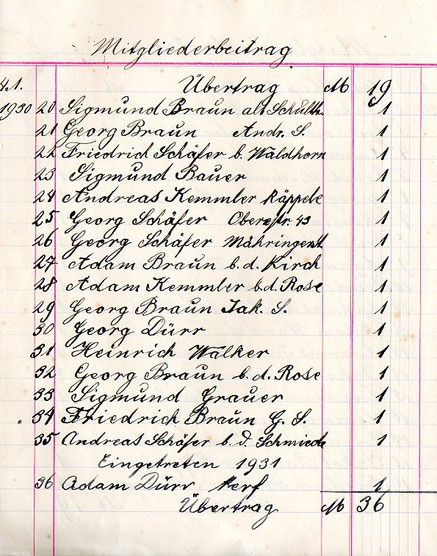 Mitgliederbeitrag
4.1. Übertrag M 19
1930 20 Sigmund Braun alt Schulth. 1
21 Georg Braun Andr. S. 1
22 Friedrich Schäfer b. Waldhorn 1
23 Sigmund Bauer 1
24 Andreas Kemmler Käppele 1
25 Georg Schäfer Oberestr. 43 1
26 Georg Schäfer Mähringerstr. 1
27 Adam Braun b. d. Kirch 1
28 Adam Kemmler b. d. Rose 1
29 Georg Braun Jak. S. 1
30 Georg Dürr 1
31 Heinrich Walker 1
32 Georg Braun b. d. Rose 1
33 Sigmund Grauer 1
34 Friedrich Braun G. S. 1
35 Andreas Schäfer b. d. Schmiede 1
Eingetreten 1931
36 Adam Dürr 1
Übertrag M 36